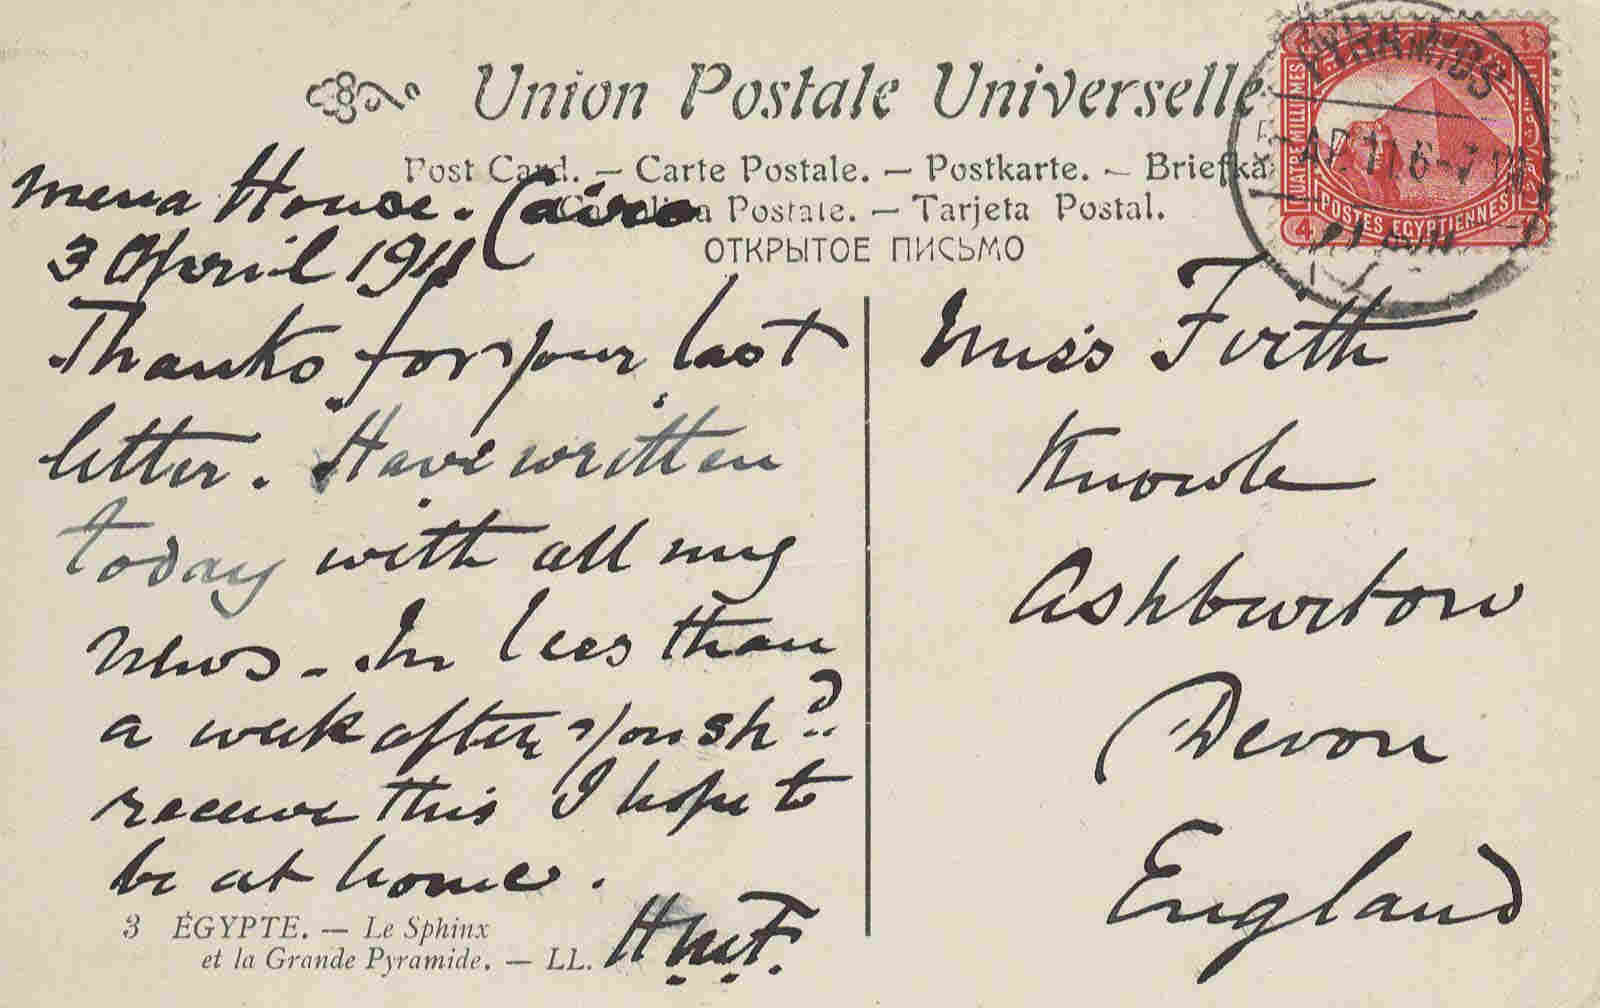 Union Postale Universelle
Post Card. — Carte Postale. — Postkarte. — Briefka
Postale. — Tarjeta Postal.
ОТКРЫТОЕ ПИСЬМО
Mena House. Cairo
3 April 1911
Thanks for your last
letter. Have written
today with all my
news - In less than
a week after you shd
receive this I hope to
be at home.
H.M.F.
3 ÉGYPTE. — Le Sphinx
et la Grande Pyramide. — LL.
Miss Firth
Knowle
Ashburton
Devon
England
PYRAMIDS
QUATRE MILLIEMES
POSTES EGYPTIENNES
4